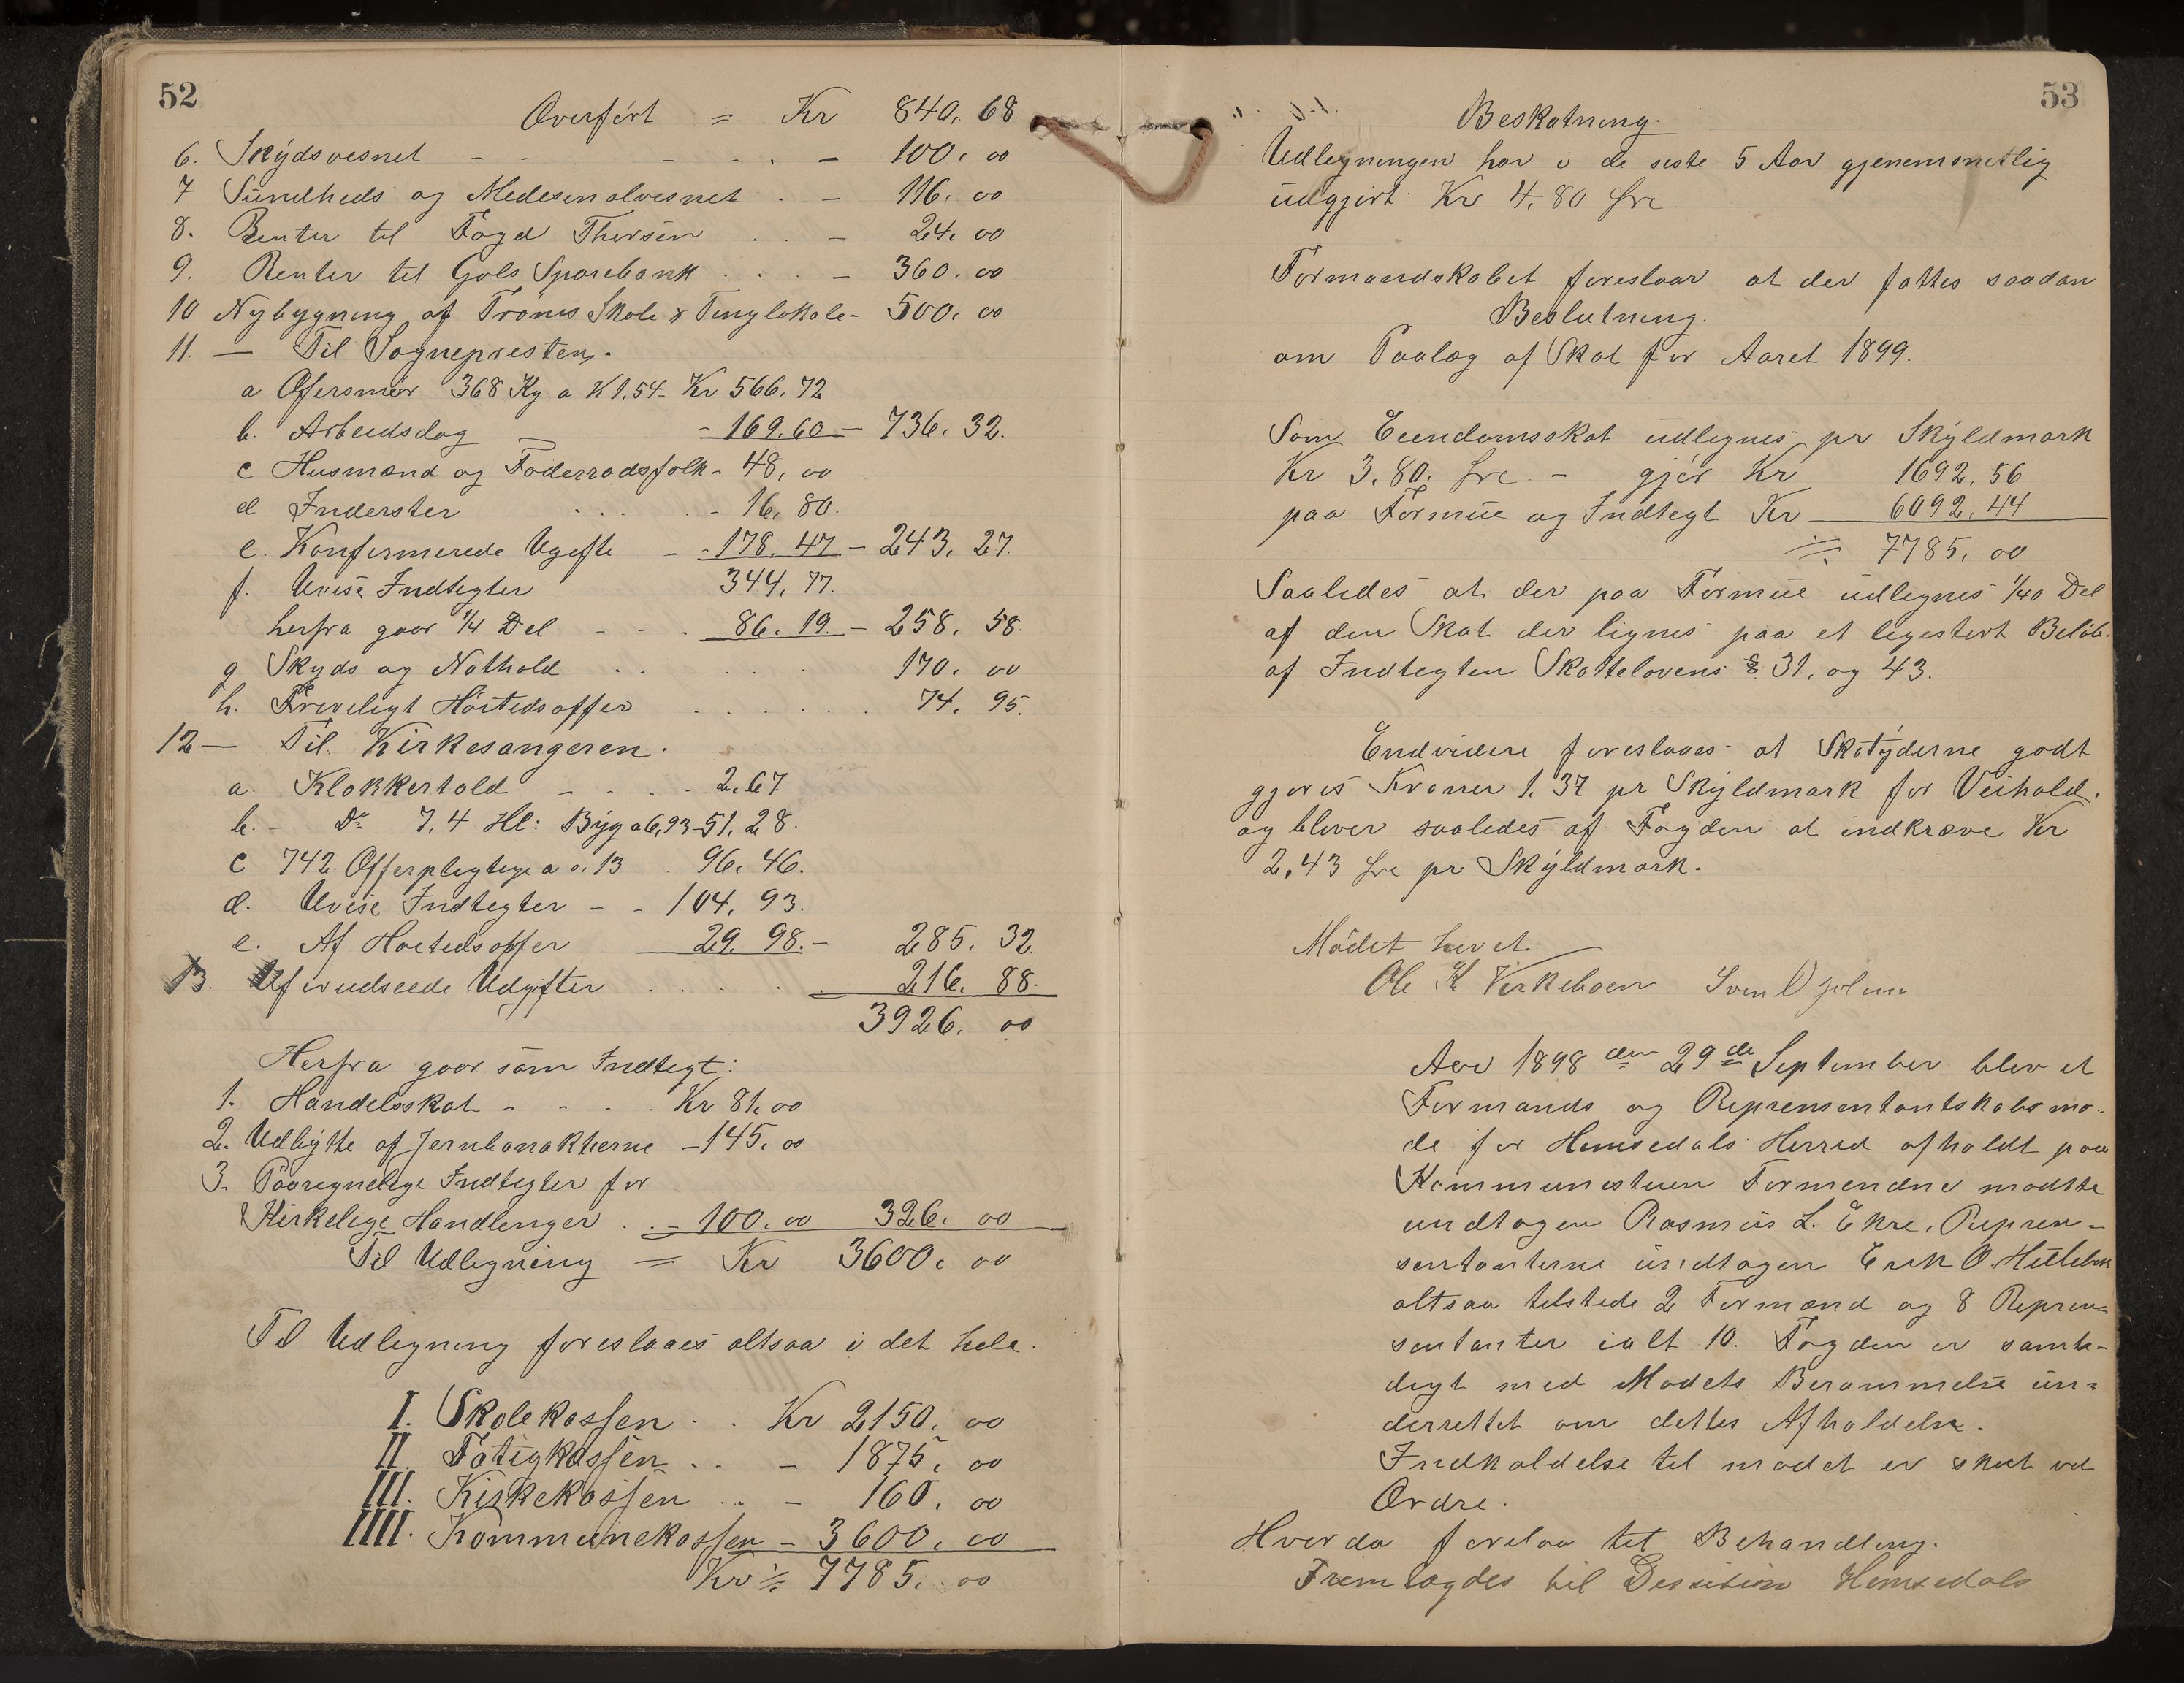 52
Overført = Kr 840. 68
6. Skydsvesnet - - - - - 100. 00
7 Sundheds og Medesinalvesnet . - 116. 00
8. Renter til Fogd Thersen . . - 24. 00
9. Renter til Gols Sparebank . . . - 360. 00
10 Nybygning af Tröms Skole & Tinglokale - 500. 00
11. — Til Sognepresten.
a Ofersmör 368 Kg. a K 1.54 - Kr 566. 72
b. Arbeidsdag - 169. 60 - 736. 32.
c Husmænd og Føderrodsfolk - 48. 00
d Inderster . . . . - 16. 80.
e. Konfermerede Ugefte - - 178. 47 - 243. 27.
f. Uvise Indtegter 344. 77.
herfra gaar 1/4 Del - - . 86. 19. - 258. 58.
g Skyds og Nathold . . . . 170. 00
h. Freveligt Høitedsoffer . . . . . . 74. 95.
12 — Til Kirkesangeren.
a. Klokkertold - - . . 2. 67
b. - Do 7,4 Hl: Byg a 6,93 - 51. 28.
c 742 Offerplegtege a 0.13 . 96. 46.
d. Uvise Indtegter - - 104. 93.
e. Af Hoetedsoffer 29. 98. - 285. 32.
13. Uforudseede Udgifter . . . . . 216. 88.
3926. 00
Herfra gaar som Indtegt:
1. Handelsskat - - - . . Kr 81. 00
2. Udbytte af Jernbanaktierne - 145. 00
3. Paaregnelige Indtegter for
Kirkelige Handlenger . . - 100. 00 326. 00
Til Udlegning = Kr 3600. 00
Til Udlegning foreslaaes altsaa i det hele.
I. Skolekassen . . Kr 2150. 00
II. Fatigkassen . . - 1875. 00
III. Kirkekassen . . - 160. 00
IIII. Kommunekassen - 3600. 00
Kr = 7785. 00
53
Beskatning.
Udlegningen har i de seste 5 Aar gjenemsnetlig
udgjort Kr 4.80 Øre.
Formandskabet foreslaar at der fattes saadan
Beslutning.
om Paalæg af Skat for Aaret 1899.
Som Eiendomsskat udlegnes pr Skyldmark
Kr 3.80. Øre. - gjør Kr 1692. 56
paa Formue og Indtegt Kr 6092. 44
= 7785. 00
Saaledes at der paa Formue udlegnes 1/40 Del
af den Skat der lignes paa et legestort Beløb.
af Indtegten Skattelovens § 31. og 43.
Endvidere foreslaaes at Skatyderne godt
gjøres Kroner 1. 37 pr Skyldmark for Veihold.
og bliver saaledes af Fogden at indkræve Kr
2.43 Øre pr Skyldmark.
Mödet hevet
Ole K Verkeboen Sven O
Aar 1898 den 29de September blev et
Formands og Reprensentantskabs mø-
de for Hemsedals Herred afholdt paa
Kommunestuen Formendne mødtte
undtagen Rasmus L. Ekre. Repren-
sentanterne undtagen Erik O.
altsaa telstede 2 Formænd og 8 Repren=
sentanter ialt 10. Fogden er samte-
degt med Mødets Berammelse un=
derrettet om dettes Afholdelse.
Indkaldelse til mødet er skeet ved
Ordre.
Hvor da forelaa tel Behandleng.
Fremlagdes til Desision Hemsedals